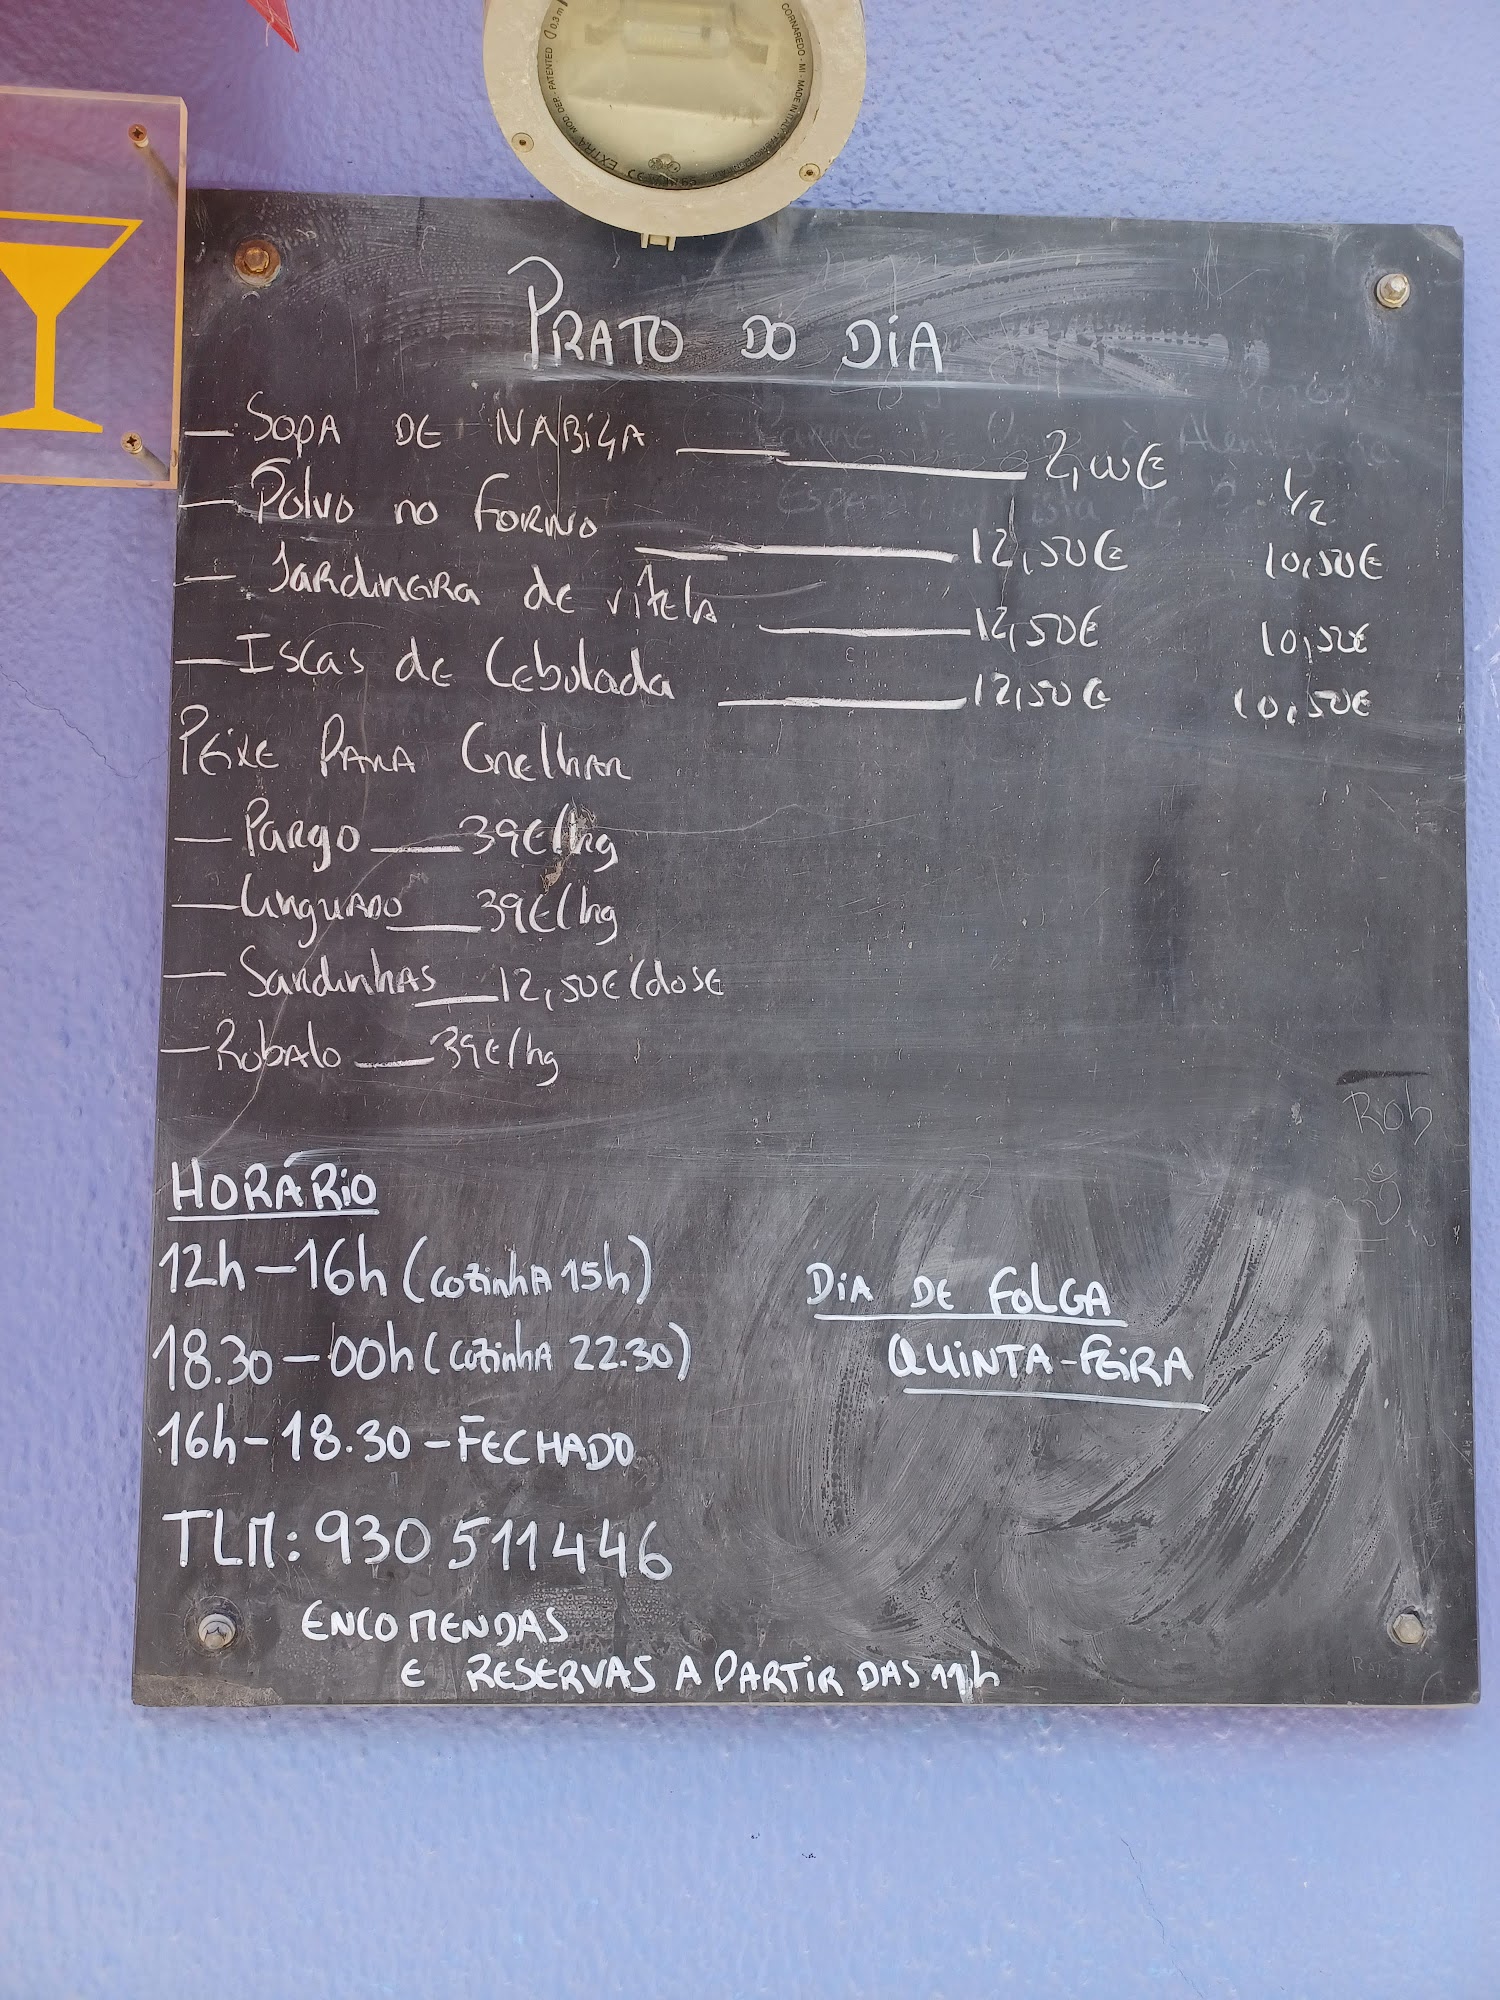 PRATO DO DIA
— SOPA DE NABIÇA — 2,00€
1/2
— Polvo no Forno — 12,50€ 10,50€
— Jardineira de vitela — 12,50€ 10,50€
— Iscas de Cebolada — 12,50€ 10,50€
Peixe Para Grelhar
— Pargo — 39€/kg
— Linguado — 39€/kg
— Sardinhas — 12,50€/dose
— Robalo — 39€/kg
HORÁRIO
12h – 16h (cozinha 15h)
18.30 – 00h (cozinha 22.30)
16h – 18.30 – FECHADO
DIA DE FOLGA
QUINTA-FEIRA
TLM: 930 511 446
ENCOMENDAS
E RESERVAS A PARTIR DAS 11h